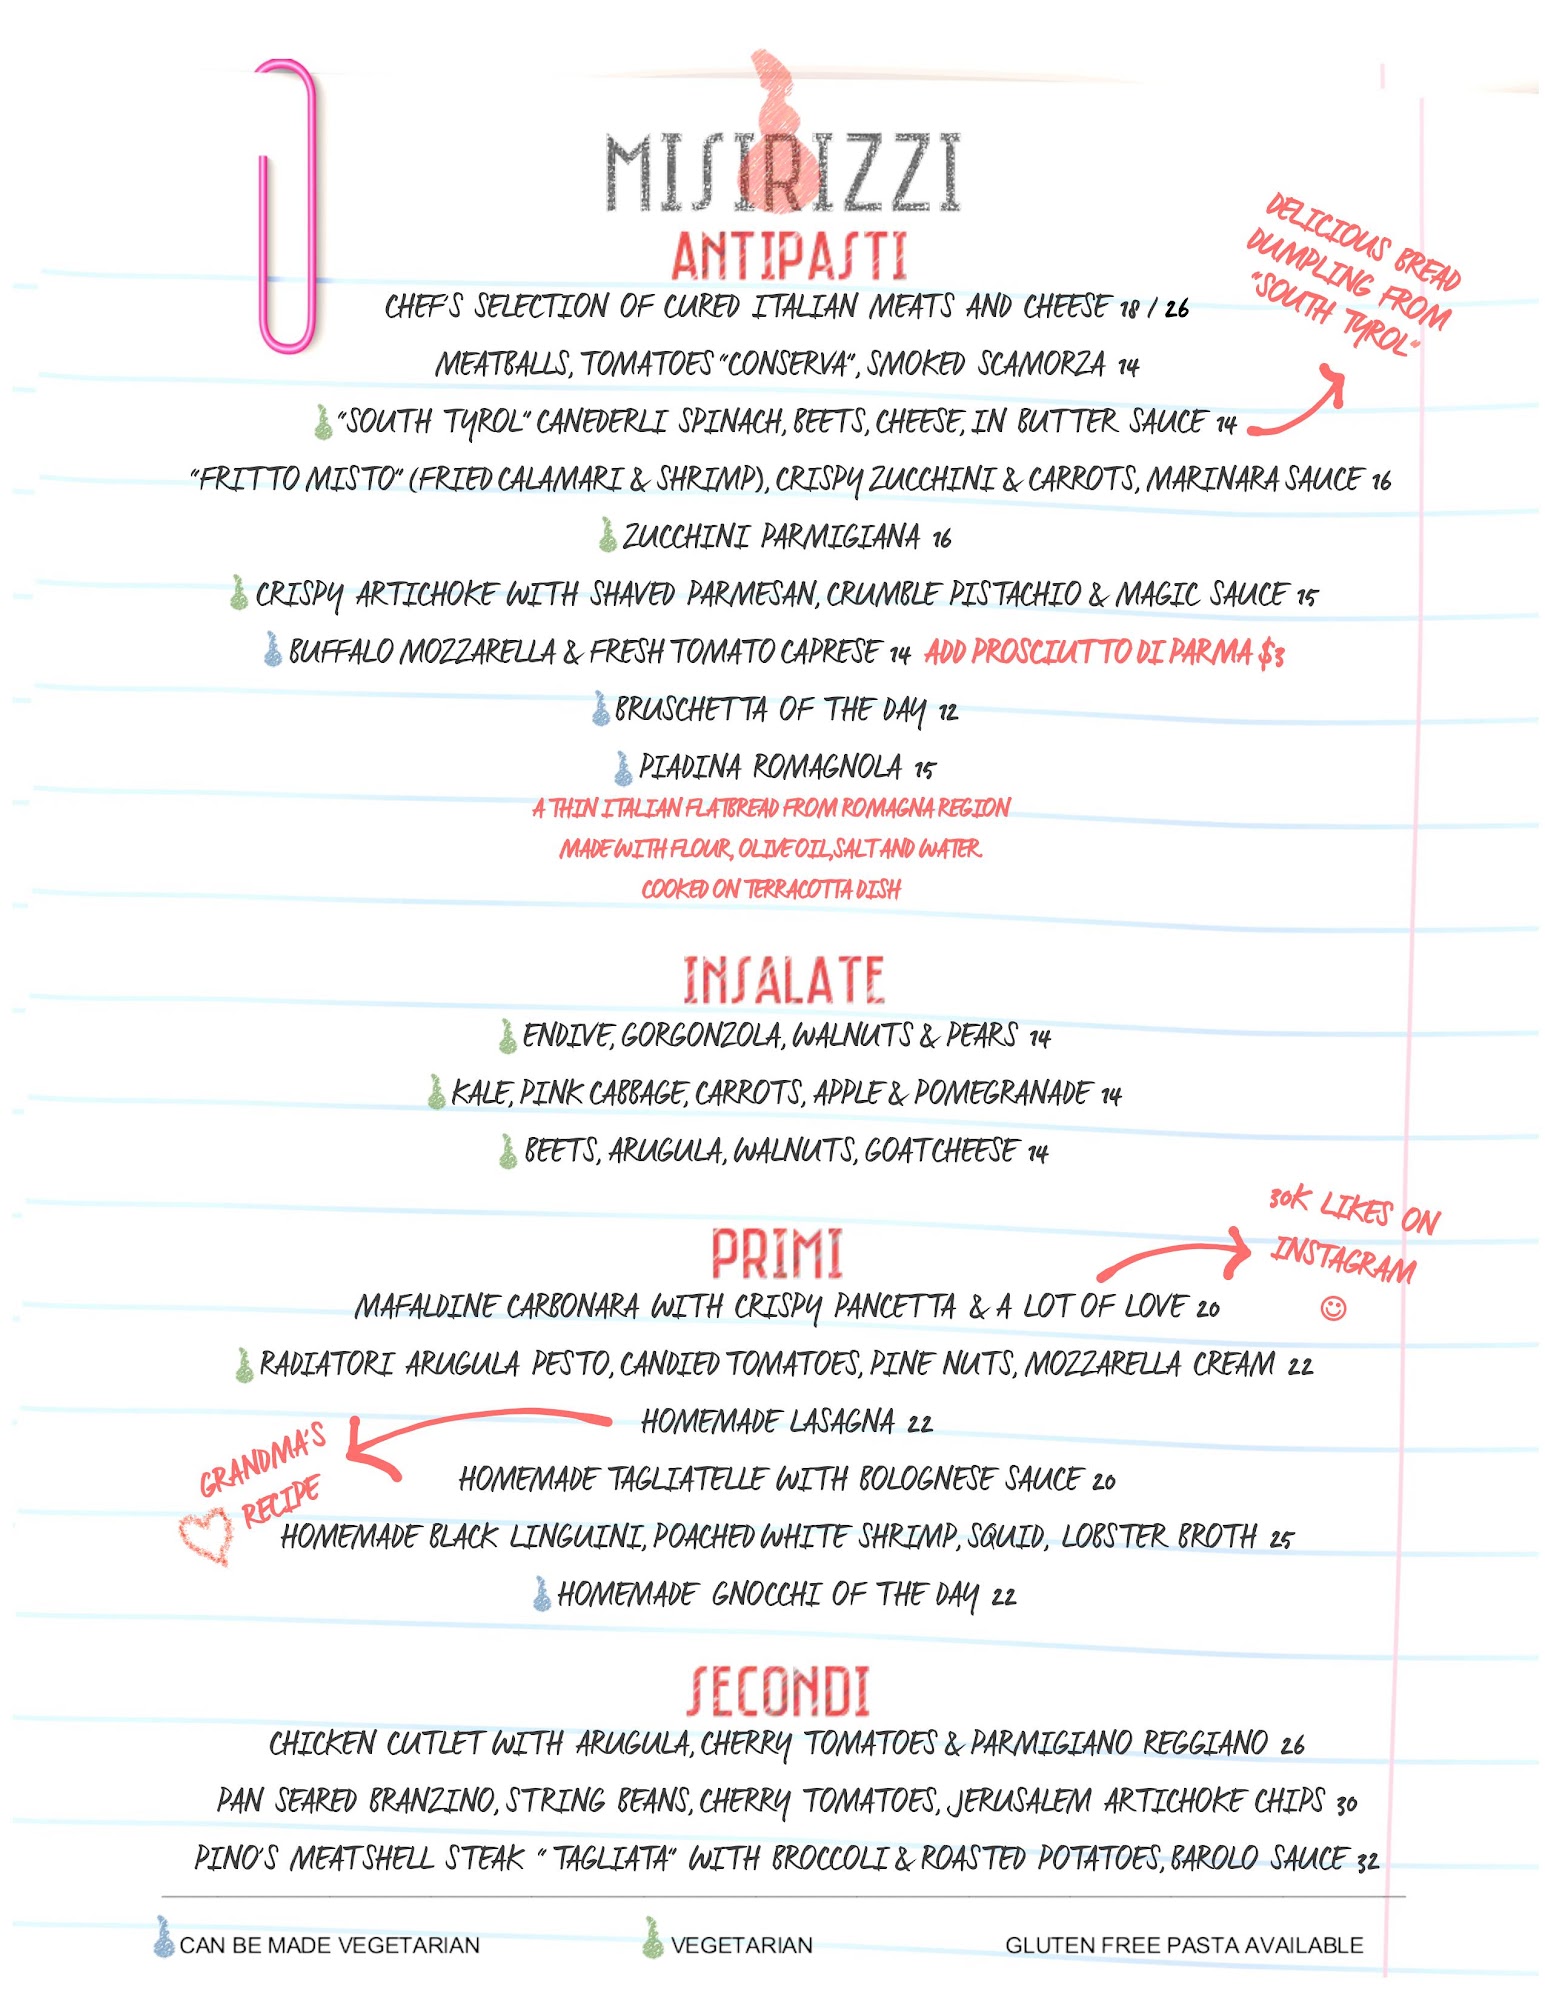 MISIRIZZI
ANTIPASTI
CHEF'S SELECTION OF CURED ITALIAN MEATS AND CHEESE 18 / 26
MEATBALLS, TOMATOES "CONSERVA", SMOKED SCAMORZA 14
"SOUTH TYROL" CANEDERLI SPINACH, BEETS, CHEESE, IN BUTTER SAUCE 14
DELICIOUS BREAD
DUMPLING FROM
"SOUTH TYROL"
"FRITTO MISTO" (FRIED CALAMARI & SHRIMP), CRISPY ZUCCHINI & CARROTS, MARINARA SAUCE 16
ZUCCHINI PARMIGIANA 16
CRISPY ARTICHOKE WITH SHAVED PARMESAN, CRUMBLE PISTACHIO & MAGIC SAUCE 15
BUFFALO MOZZARELLA & FRESH TOMATO CAPRESE 14 ADD PROSCIUTTO DI PARMA $3
BRUSCHETTA OF THE DAY 12
PIADINA ROMAGNOLA 15
A THIN ITALIAN FLATBREAD FROM ROMAGNA REGION
MADE WITH FLOUR, OLIVE OIL, SALT AND WATER.
COOKED ON TERRACOTTA DISH
INSALATE
ENDIVE, GORGONZOLA, WALNUTS & PEARS 14
KALE, PINK CABBAGE, CARROTS, APPLE & POMEGRANADE 14
BEETS, ARUGULA, WALNUTS, GOAT CHEESE 14
PRIMI
30K LIKES ON
INSTAGRAM
☺
MAFALDINE CARBONARA WITH CRISPY PANCETTA & A LOT OF LOVE 20
RADIATORI ARUGULA PESTO, CANDIED TOMATOES, PINE NUTS, MOZZARELLA CREAM 22
HOMEMADE LASAGNA 22
GRANDMA'S
RECIPE
HOMEMADE TAGLIATELLE WITH BOLOGNESE SAUCE 20
HOMEMADE BLACK LINGUINI, POACHED WHITE SHRIMP, SQUID, LOBSTER BROTH 25
HOMEMADE GNOCCHI OF THE DAY 22
SECONDI
CHICKEN CUTLET WITH ARUGULA, CHERRY TOMATOES & PARMIGIANO REGGIANO 26
PAN SEARED BRANZINO, STRING BEANS, CHERRY TOMATOES, JERUSALEM ARTICHOKE CHIPS 30
PINO'S MEATSHELL STEAK " TAGLIATA" WITH BROCCOLI & ROASTED POTATOES, BAROLO SAUCE 32
CAN BE MADE VEGETARIAN
VEGETARIAN
GLUTEN FREE PASTA AVAILABLE